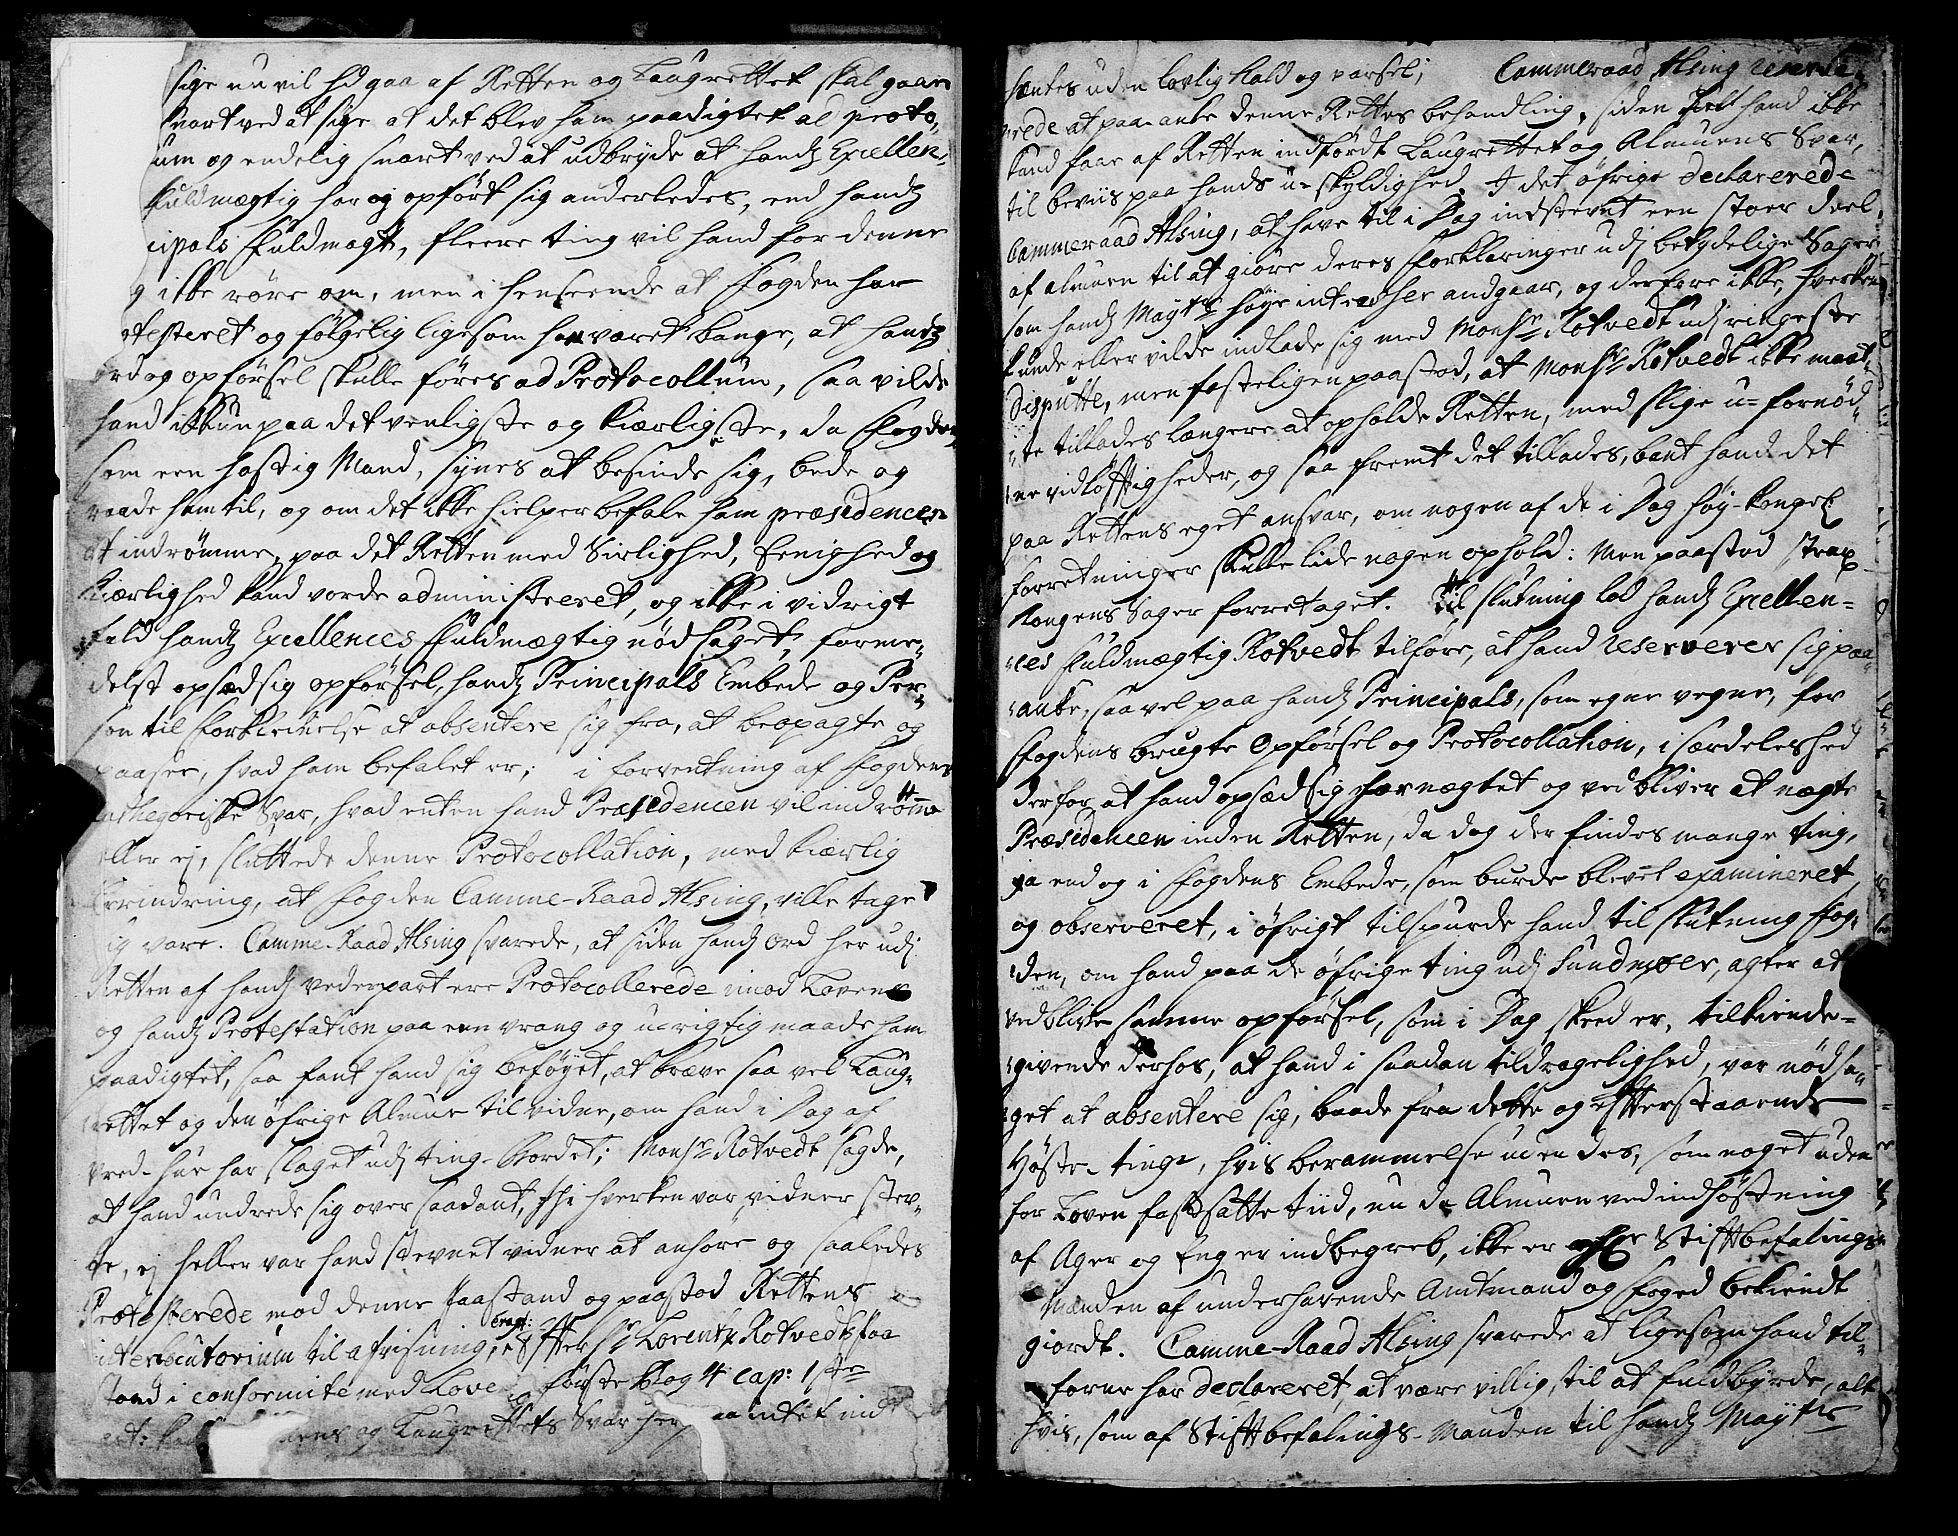 sige nu vil hid gaa af Retten og Laugrettet skal gaae
snart ved at sige at det blev ham paadigtet al proto,
um og endelig snart ved at udbryde at handz Excellen,
fuldmægtig har og opført sig anderledes, end handz
cipals Fuldmagt, fleere ting vil hand for denne
g ikke røre om, men i henseende at Fogden har
otesteret og følgelig ligesom har været bange, at handz
ord og opførsel skulle føres ad Protocollum, saa vilde
hand ikkun paa det venligste og kiærligste, da Fogden,
som een hastig Mand, synes at besinde sig, bede og
raade ham til, og om det ikke hielper befale ham præsidencen
at indrømme, paa det Retten med Sirlighed, Eenighed og
Kiærlighed kand vorde administreret, og ikke i vidrigt
fald handz Excellences Fuldmægtig nødsaget, forme,
delst opsædsig opførsel, handz Principals Embede og Per,
son til Forkleinelse at absentere sig fra, at beopagte og
paasee, hvad ham befalet er; i forventning af Fogdens
cathegoriske Svar, hvad enten hand Præsidencen vil indrømme
eller ej, sluttede denne Protocollation, med kiærlig
Erindring, at Fogden Camme-Raad Alsing, ville tage
sig vare. Camme-Raad Alsing svarede, at siden handz ord her udj
Retten af handz vederpart ere Protocollerede imod Loven
og handz Protestation paa een vrang og urigtig maade ham
paadigtet, saa fant hand sig beføyet, at kræve saa vel Laug,
rettet og den øfrige Almue til vidne, om hand i Dag af
vred-hue har slaget udj ting-Bordet; Monsr Rotvedt sagde,
at hand undrede sig over saadant, thi hverken var vidner stev,
te, ej heller var hand stevnet vidner at anhøre og saaledes
Protesterede mod denne paastand og paastod Rettens
interlocutorium til afvisning, Eragt: Effter Sr Lorentz Rotvedts paa
stand i conformite med Loven første Bog 4 cap: 1 ste
art: kand ens og Laugrettets Svar her paa intet ind
hæntes uden lovlig kald og varsel; Cammeraad Alsing reserve,
rede at paa-anke denne Rettes behandling, siden hand ikke
kand faae af Retten indført Laugrettet og Almuens Svar,
til beviis paa hands u-skyldighed. I det øfrige declarerede
Cammeraad Alsing, at have til i Dag indstevnt een stoer deel
af almuen til at giøre deres Forklaringer udj betydelige Sager
som handz Mayts høye interesser andgaar, og derfore ikke, hverken
kunde eller vilde indlade sig med Monsr Rotvedt udj ringeste
Disputte, men fasteligen paastod, at Monsr Rotvedt ikke maat,
te tillades længere at opholde Retten, med slige u-fornød,
ne vidløfftigheder, og saa fremt det tillades, bant hand det
paa Rettens eget ansvar, om nogen af de i Dag høy-kongel:
forretninger skulle lide nogen ophold: Men paastod strax
Kongens Sager forretaget. Til slutning lod handz Excellen=
ces Fuldmægtig Rotvedt tilføre, at hand reserverer sig paa
anke, saavel paa handz Principals, som egne vegne, for
Fogdens brugte Opførsel og Protocollation, i særdeleshed
derfor at hand opsædsig har nægtet og ved bliver at nægte
Præsidencen inden Retten, da dog der findes mange ting,
ja end og i Fogdens Embede, som burde blevet examineret
og observeret, i øfrigt tilspurde hand til slutning Fog,
den, om hand paa de øfrige ting udj Sundmøer, agter at
vedblive samme opførsel, som i Dag skeed er, tilkiende=
givende derhos, at hand i saadan tildragelighed, var nødsa,
get at absentere sig, baade fra dette og effterstaaende
Høste-tinge, hvis berammelse uden des, som noget uden
for Loven fastsatte tiid, nu da Almuen ved indhøstning
af Ager og Eng er indbegreb, ikke er Stifftbefalings
Manden af underhavende Amtmand og Foged bekiendt
giordt. Camme-Raad Alsing svarede at ligesom hand til
forne har declareret, at være villig, til at fuldbyrde, alt
hvis, som af Stifftbefalings-Manden til handz Mayts